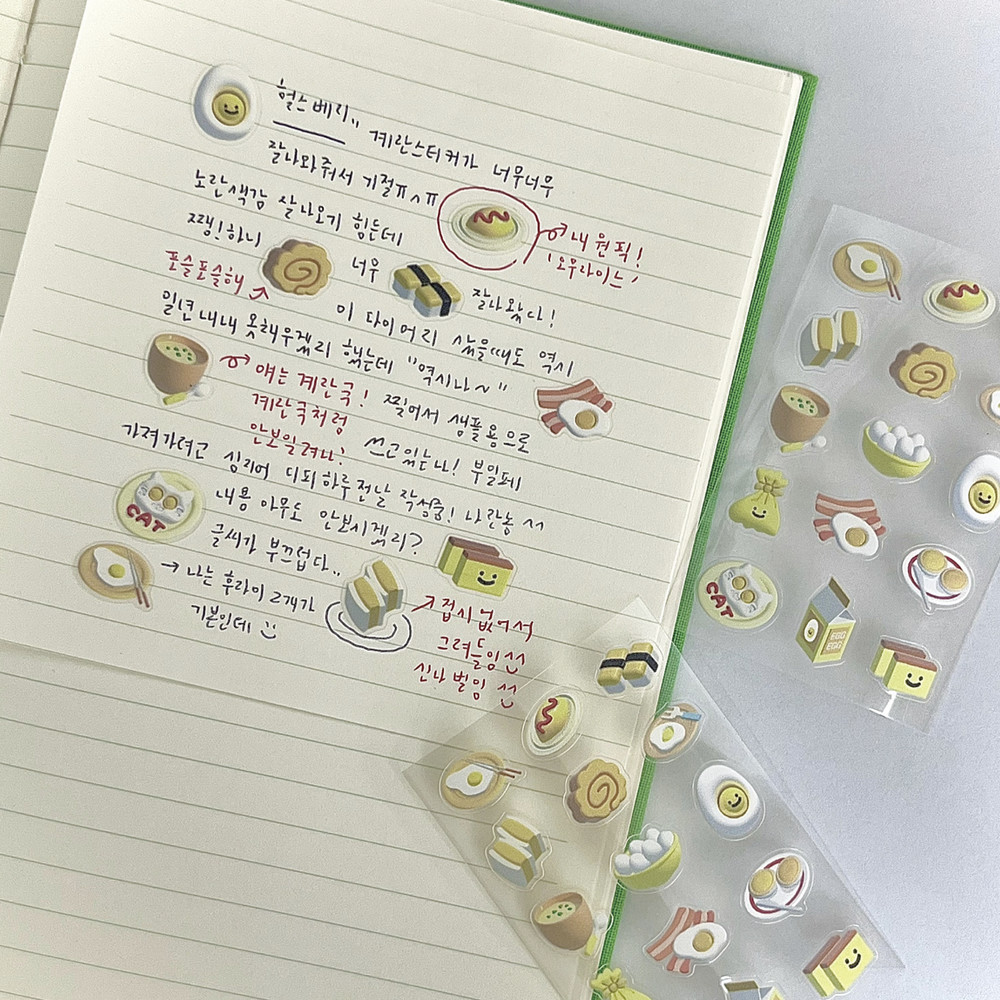 헐스베리" 계란스티커가 너무너무
잘나와줘서 기절ㅠㅅㅠ
노란색감 잘나오기 힘든데
→ 내 원픽!
'오무라이스'
쨍!하니 너무 잘나왔다!
포슬포슬해
이 다이어리 샀을때도 역시
일년내내 못채우겠지 했는데 "역시나~"
→ 얘는 계란국!
계란국처럼
안보일려나?
찢어서 샘플용으로
쓰고있는나! 부일페
가져가려고 심지어 디피하루전날 작성중!
내용 아무도 안보시겠지?
글씨가 부끄럽다..
→ 나는 후라이 2개가
기본인데
→ 접시 없어서
그려드림
신나 벌임
CAT
CAT
EGG
EGG